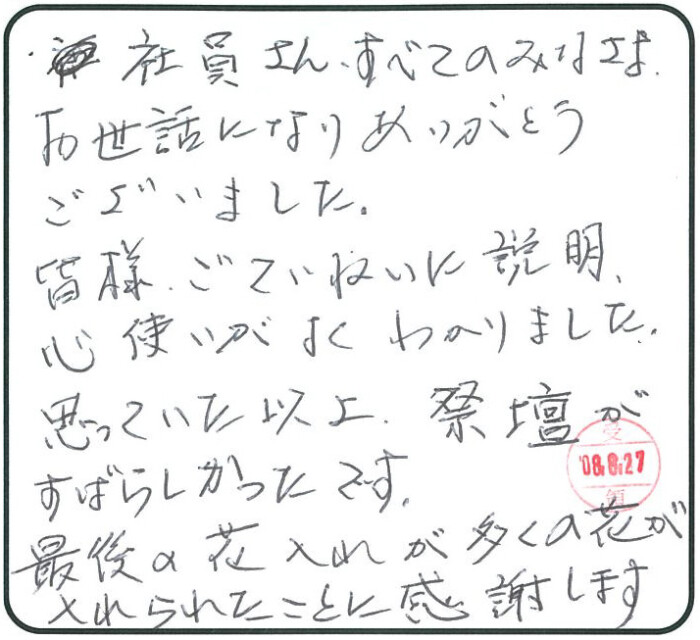 社員さん、すべてのみなさま、
お世話になりありがとう
ございました。
皆様、ごていねいに説明、
心使いがよくわかりました。
思っていた以上、祭壇が
すばらしかったです。
最後の花入れが多くの花が
入れられたことに感謝します
受
'08.8.27
領